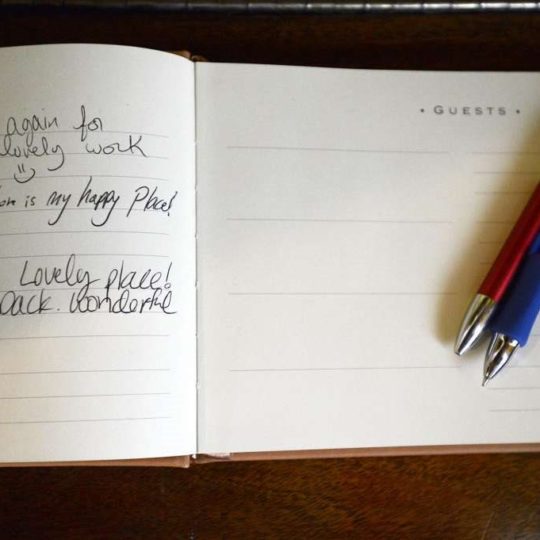 again for
lovely work
is my happy Place!
Lovely place!
Wonderful
• GUESTS •